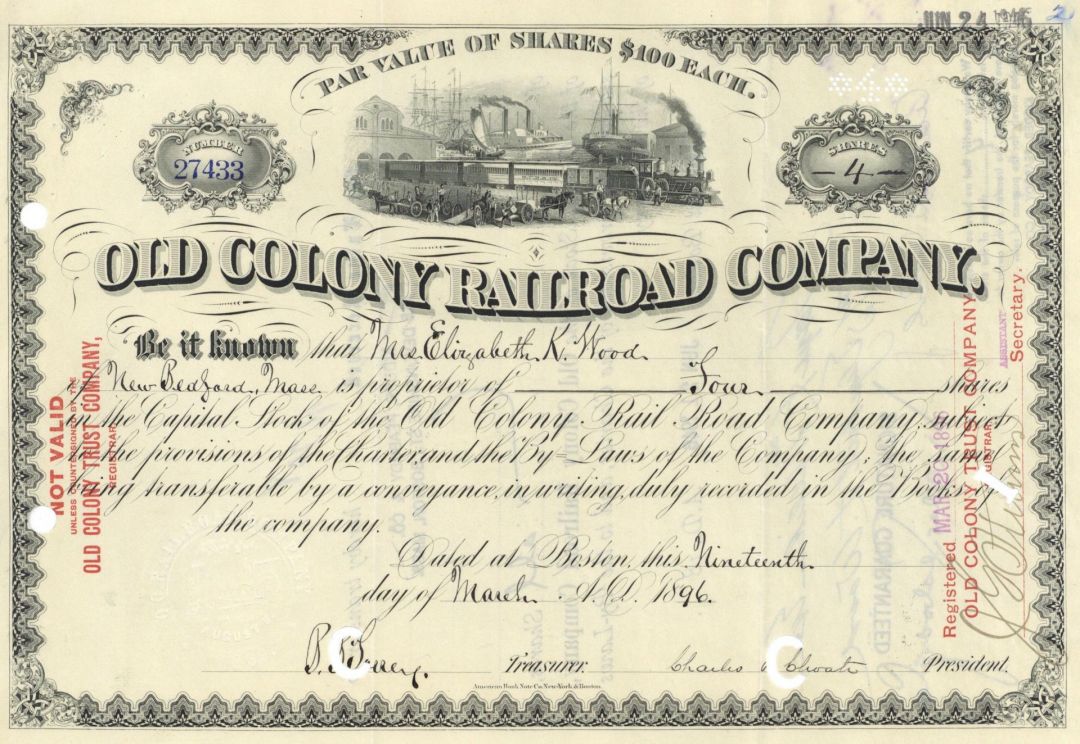 JUN 24
2
PAR VALUE OF SHARES $100 EACH.
*4*
NUMBER
27433
SHARES
4
OLD COLONY RAILROAD COMPANY.
Be it known that Mrs. Elizabeth K. Wood
of New Bedford, Mass is proprietor of Four shares
in the Capital Stock of the Old Colony Rail Road Company, subject
to the provisions of the Charter and the By-Laws of the Company; the same
being transferable by a conveyance, in writing, duly recorded in the Books of
the company.
Dated at Boston, this Nineteenth
day of March A.D. 1896.
Treasurer.
Charles F. Choate President.
American Bank Note Co. New-York & Boston.
NOT VALID
UNLESS COUNTERSIGNED BY THE
OLD COLONY TRUST COMPANY,
REGISTRAR
Registered MAR 20 1896
OLD COLONY TRUST COMPANY
REGISTRAR
ASSISTANT
Secretary.